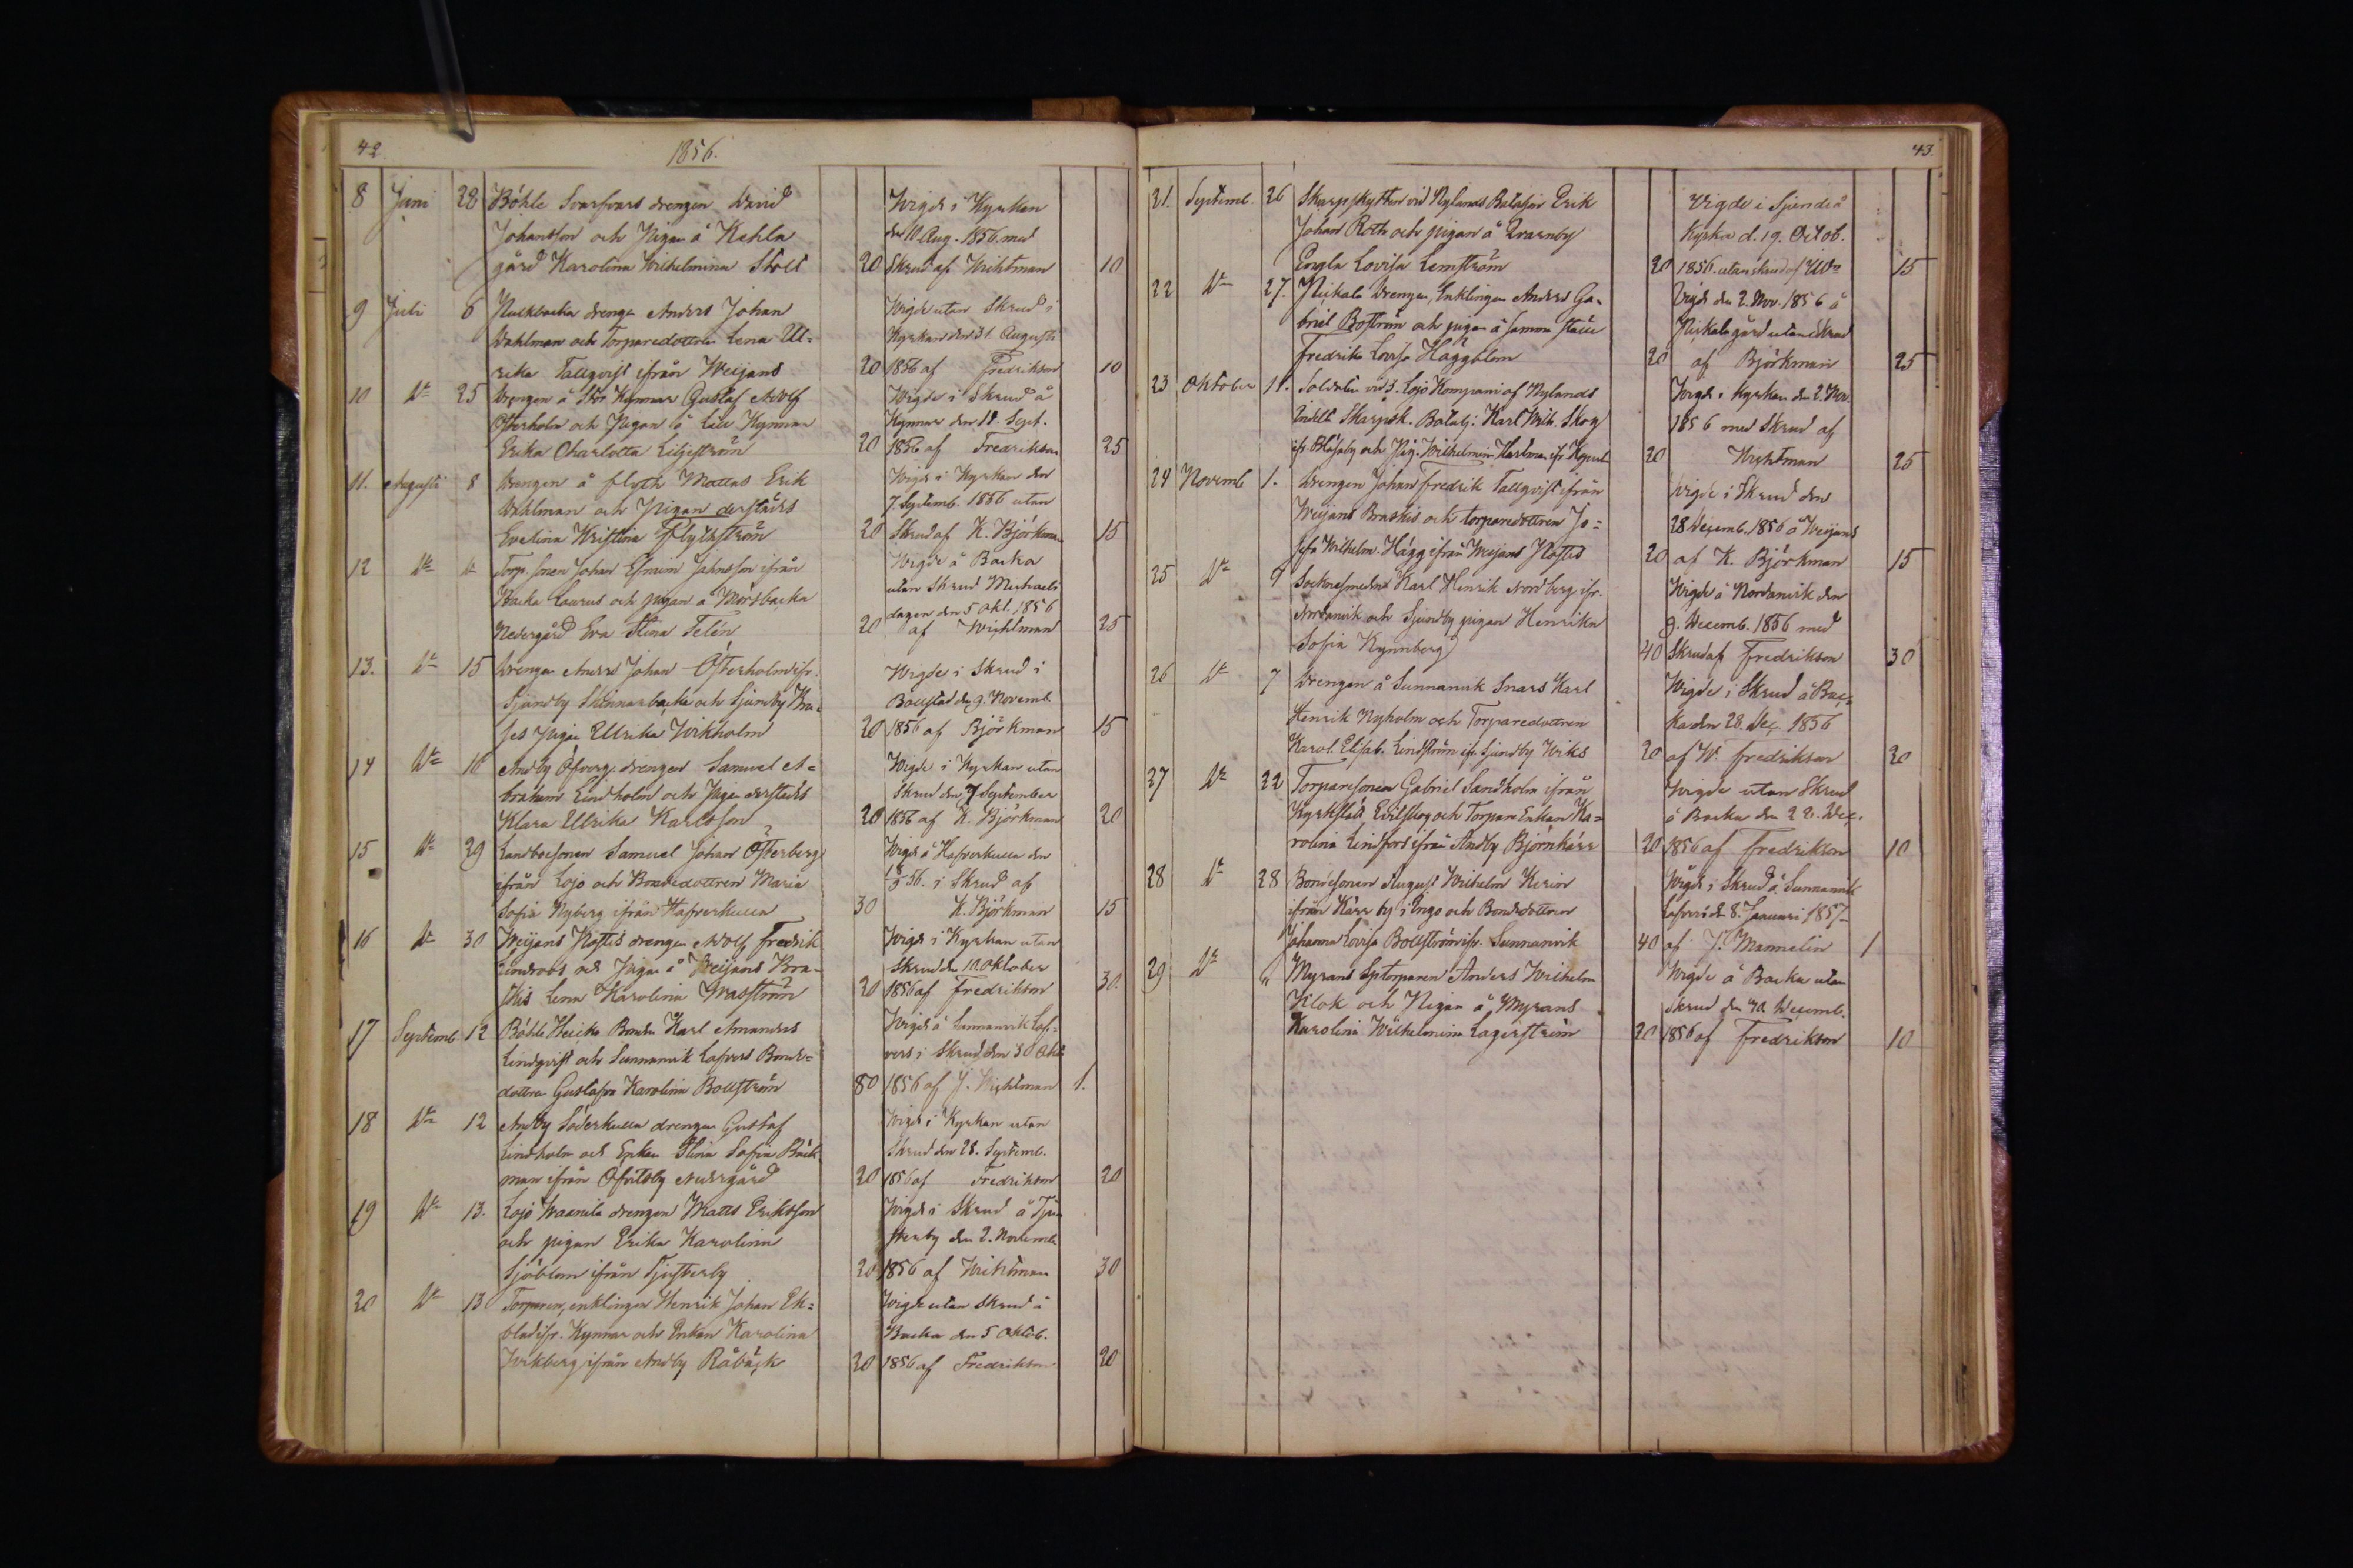 42.
1856.
8 Juni 28 Böhle Svarfvars drengen David Wigde i Kyrkan
Johansson och Pigan å Kehla den 10 Aug. 1856 med
gård Karolina Wilhelmina Stolt 20 Skrud af Wichtman 10
9 Juli 6 drengen Anders Johan Wigde utan Skrud i
Wahlman och Torparedottren Lena Ul= Kyrkan den 31 Augusti
rika Tallqvist ifrån Weijans 20 1856 af Fredrikson 10
10 Dº 25 Drengen å Stor Kynnar Gustaf Adolf Wigde i Skrud å
Österholm och Pigan å Lill Kynnar Kynnar den Sept.
Erika Charlotta Liljeström 20 1856 af Fredrikson 25
11. Augusti 8 Drengen å Flyth Mattas Erik Wigde i Kyrkan den
Wahlman och Pigan derstädes 7. Septemb. 1856 utan
Evelina Kristina Flyckström 20 Skrud af K. Björkman 15
12 Dº Dº Torp. sonen Johan Efraim Johnsson ifrån Wigde å Backa
Backa Laurus och pigan å Mörsbacka utan Skrud Michaeli
Nedergård Eva Stina Telén dagen den 5 Okt. 1856
20 af Wichtman 25
13. Dº 15 Drengen Anders Johan Österholm ifr. Wigde i Skrud i
Sjundby Skinnarbacka och Sjundby Bollstad den 9. Novemb.
Pigan Ullrika Wikholm 20 1856 af Björkman 15
14 Dº 16 Andby Öfverg. drengen Samuel A= Wigde i Kyrkan utan
braham Lindholm och Pigan derstädes Skrud den 7 September
Klara Ullrika Karlsson 20 1856 af K. Björkman 20
15 Dº 29 Landbosonen Samuel Johan Österberg Wigde å Hafverkulla den
ifrån Lojo och Bondedottren Maria 56. i Skrud af
Sofia Nyberg ifrån Hafverkulla 30 K. Björkman 15
16 Dº 30 Weijans drengen Adolf Fredrik Wigde i Kyrkan utan
Lindroos och Pigan å Weijans Bra= Skrud den 10. Oktober
skis Lena Karolina 20 1856 af Fredrikson 30.
17 Septemb. 12 Böhle Heicka Bonden Karl Amandus Wigde å Sunnanvik Laf=
Lindqvist och Sunnanvik Lafvers Bonde= vers i Skrud den 30 Okt
dottren Gustafva Karolina Bollström 80 1856 af J. Wichtman 1.
18 Dº 12 Andby Söderkulla drengen Gustaf Wigde i Kyrkan utan
Lindholm och Enkan Stina Sofia Bäck= Skrud den 28. Septemb.
man ifrån Öfvitsby Nedergård 20 1856 af Fredrikson 20
19 Dº 13. Lojo drengen Matts Eriksson Wigde i Skrud å Tju=
och pigan Erika Karolina sterby den 2. Novemb.
Sjöblom ifrån Tjusterby 20 1856 af Wichtman 30
20 Dº 13 Torparen, enklingen Henrik Johan Ek= Wigde utan Skrud å
blad ifr. Kynnar och Enkan Karolina Backa den 5 Oktob.
Wikberg ifrån Andby Råbäck 20 1856 af Fredrikson 20
43.
21. Septemb. 26 Skarpskytten vid Nylands Bataljon Erik Vigde i Sjundeå
Johan Roth och pigan å Qvarnby Kyrka d. 19. Octob.
Engla Lovisa Lemström 20 1856. utan skrud af 15
22 Dº 27. Pickala Drengen, Enklingen Anders Ga= Vigde den 2. Nov. 1856 å
briel Boström och pigan å samma ställe Pickala gård utan skrud
Fredrika Lovisa Häggblom 20 af Björkman 25
23 Oktober 11. Soldaten vid 3. Lojo Kompani af Nylands Wigde i Kyrkan den 2. Nov.
Indelta Skarpsk. Batalj: Karl Wilh. Skog 1856 med Skrud af
ifr. och Pig. Wilhelmina ifr. 20 Wichtman 25
24 Novemb 1. Drengen Johan Fredrik Tallqvist ifrån Wigde i Skrud den
Weijans Braskis och torparedottren Jo= 28 Decemb. 1856 å Weijans
sefa Wilhelm. Hägg ifrån Weijans 20 af K. Björkman 15
25 Dº 9 Sockneesmeden Karl Henrik Nordberg ifr. Wigde å Nordanvik den
Nordanvik och Sjundby pigan Henrika 9. Decemb. 1856 med
Sofia Rynnberg 40 Skrud af Fredrikson 30
26 Dº 7 Drengen å Sunnanvik Snars Karl Wigde i Skrud å Bac=
Henrik Nyholm och Torparedottren ka den 28. Dec. 1856
Karol. Elisab. Lindström ifr. Sjundby Wiks 20 af W. Fredrikson 20
27 Dº 22 Torparesonen Gabriel Sandholm ifrån Wigde utan Skrud
Kyrkstad Evitskog och Torpare Enkan Ka= å Backa den 22. Dec.
rolina Lindfors ifrån Andby Björnkärr 20 1856 af Fredrikson 10
28 Dº 28 Bondesonen August Wilhelm Wigde i Skrud å Sunnanvik
ifrån Kärrby i Ingo och Bondedottren Lafvers d. 8. Januari 1857
Johanna Lovisa Bollström ifr. Sunnanvik 40 af J. Mannelin 1
29 Dº " Myrans Sytorparen Anders Wilhelm Wigde å Backa utan
Klok och Pigan å Myrans Skrud den Decemb.
Karolina Wilhelmina Lagerström 20 1856 af Fredrikson 10